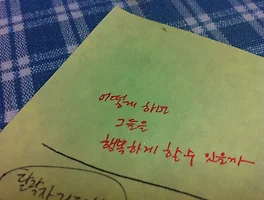 어떻게 하면
그들을
행복하게 할 수 있을까